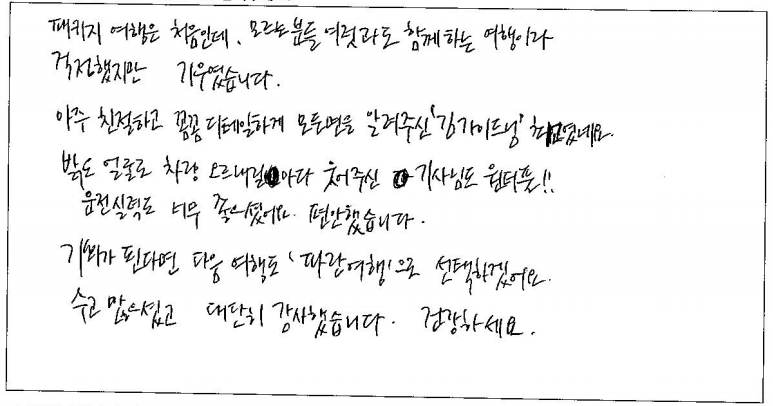 패키지 여행은 처음인데, 모르는분들 여럿과도 함께하는 여행이라
걱정했지만 기우였습니다.
아주 친절하고 꼼꼼 디테일하게 모든면을 알려주신 '김가이드님' 최고였네요.
밝은 얼굴로 차량 오르내릴 마다 웃어주신 기사님도 원더풀!!
운전실력도 너무 좋으셨어요. 편안했습니다.
기회가 된다면 다음 여행도 '파란여행'으로 선택하겠어요.
수고 많으셨고 대단히 감사했습니다. 건강하세요.